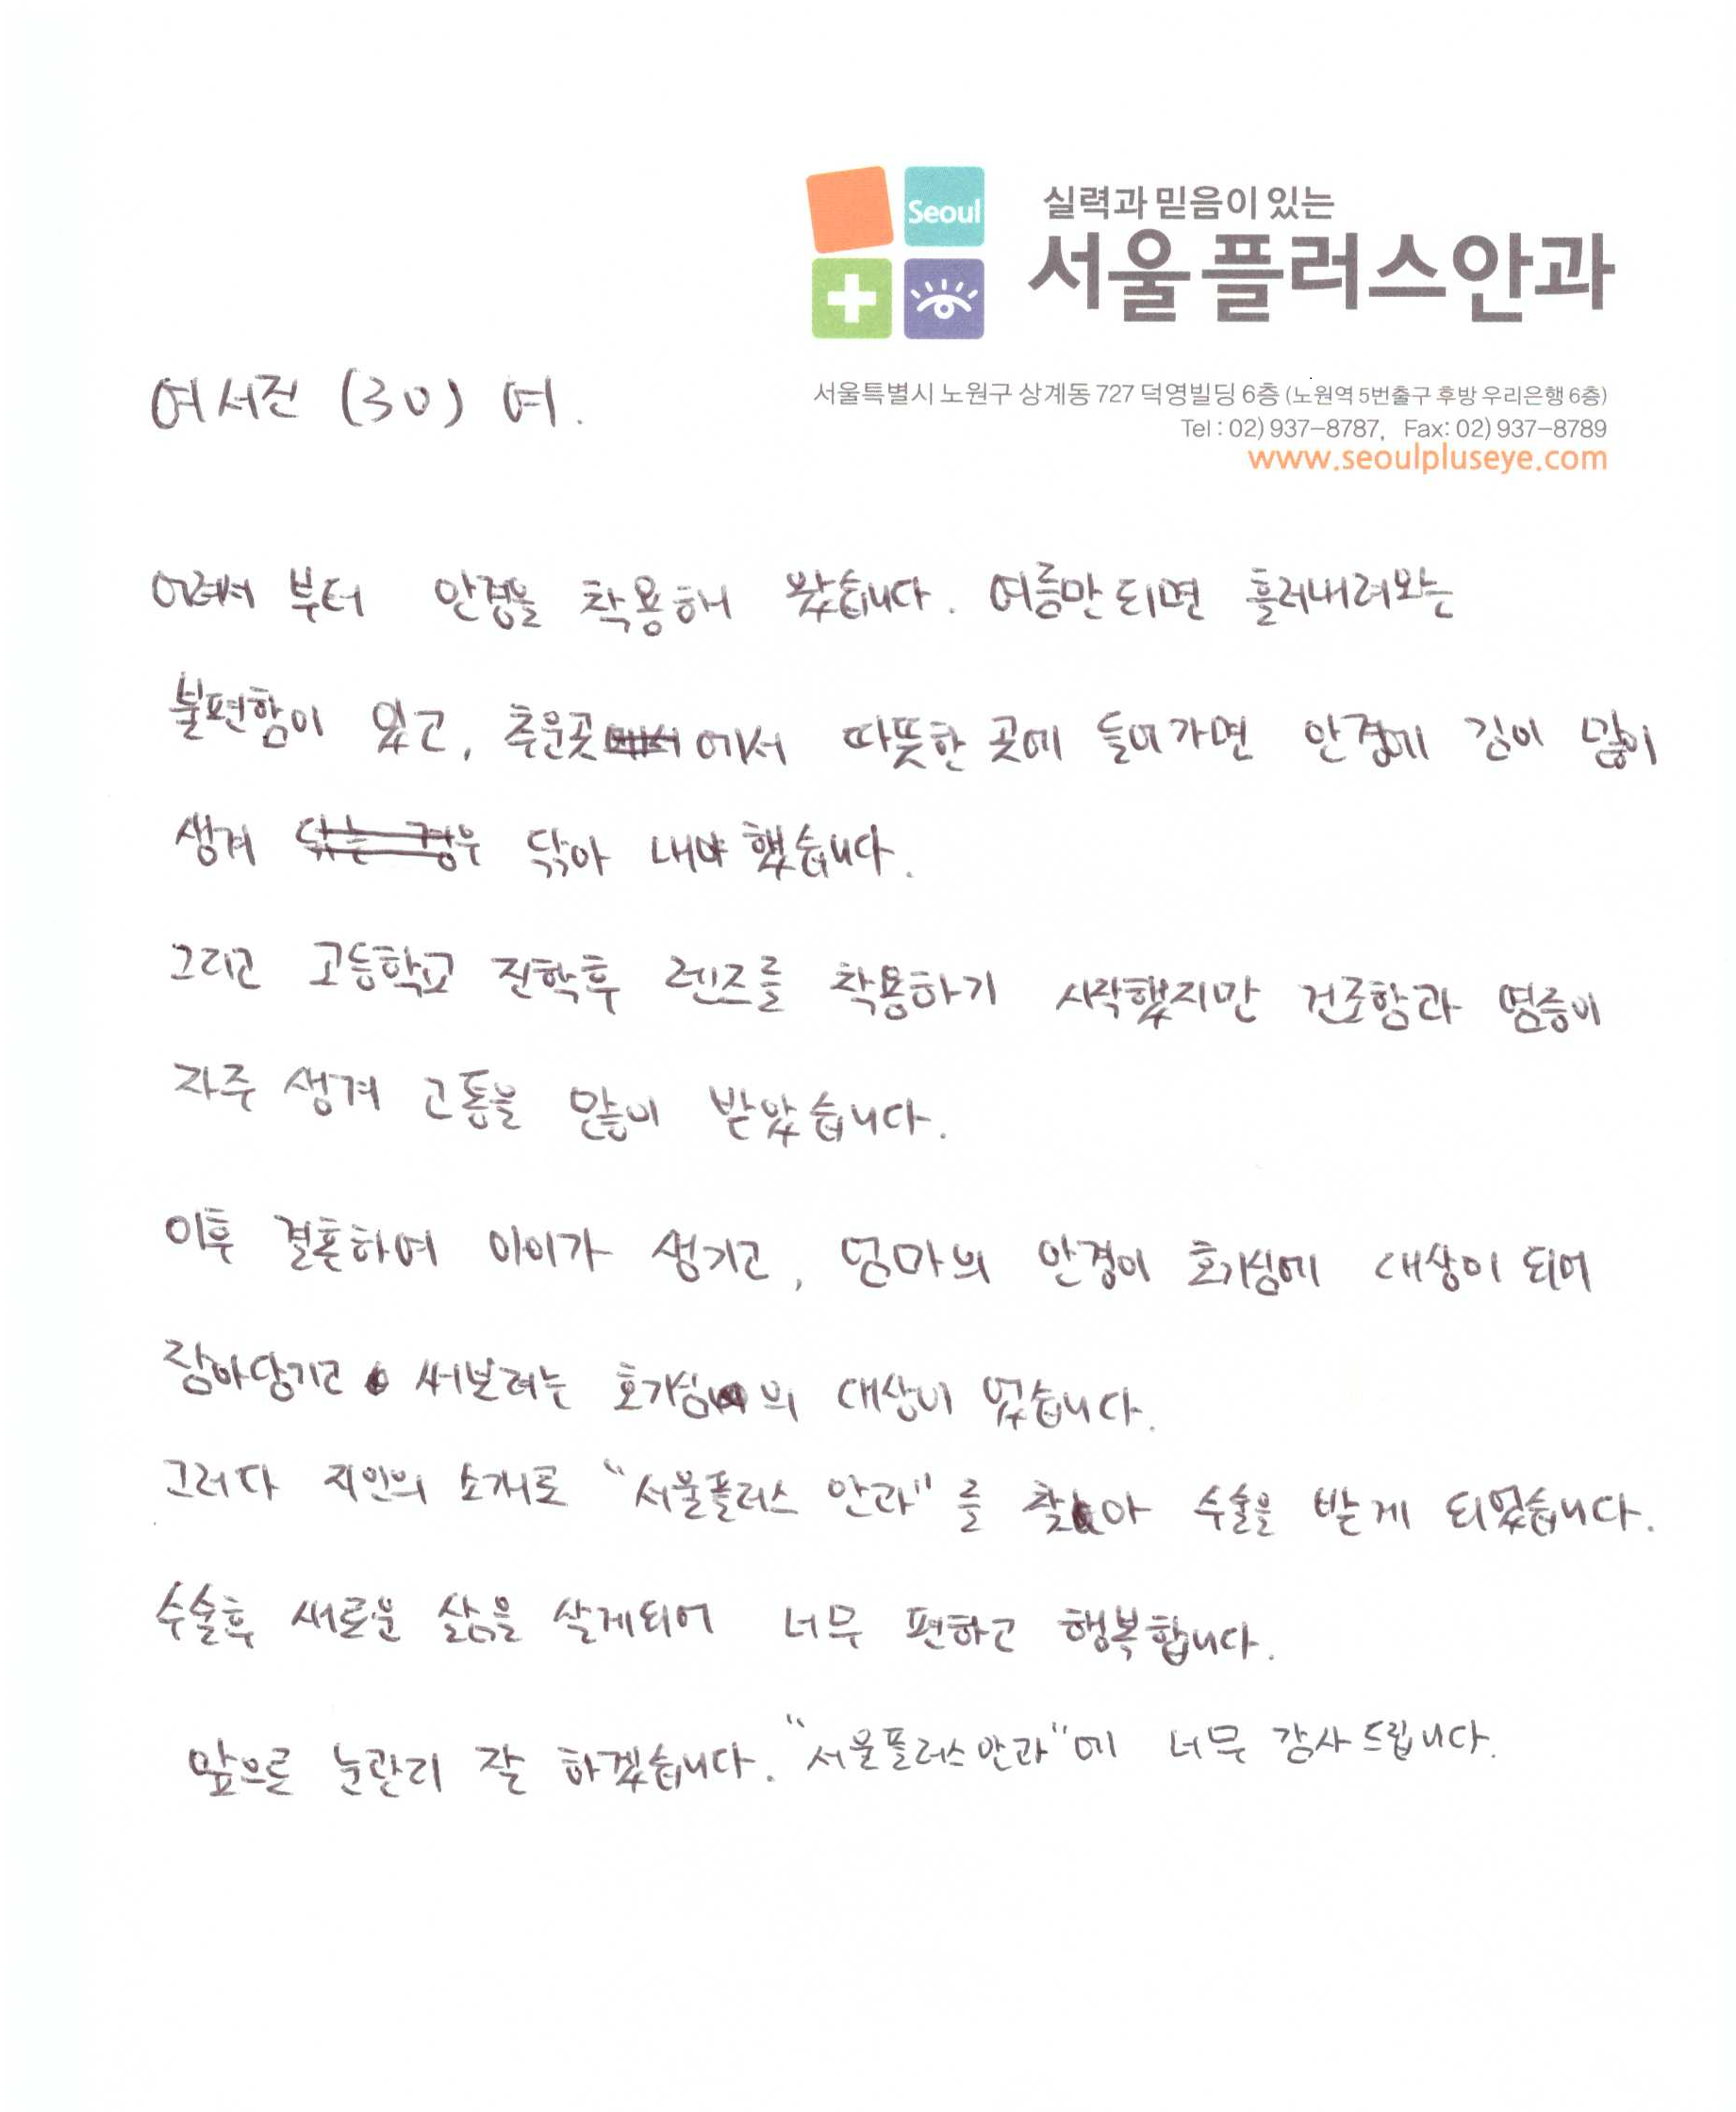 Seoul
실력과 믿음이 있는
서울플러스안과
서울특별시 노원구 상계동 727 덕영빌딩 6층 (노원역 5번출구 후방 우리은행 6층)
Tel : 02) 937-8787, Fax: 02) 937-8789
www.seoulpluseye.com
여서진 (30) 여.
어려서 부터 안경을 착용해 왔습니다. 여름만되면 흘러내려와는
불편함이 있고, 추운곳에서 따뜻한 곳에 들어가면 안경에 김이 많이
생겨 닦아 내야 했습니다.
그리고 고등학교 진학후 렌즈를 착용하기 시작했지만 건조함과 염증이
자주 생겨 고통을 많이 받았습니다.
이후 결혼하여 아이가 생기고, 엄마의 안경이 호기심에 대상이 되어
잡아당기고 써보려는 호기심의 대상이 었습니다.
그러다 지인의 소개로 "서울플러스 안과"를 찾아 수술을 받게 되었습니다.
수술후 새로운 삶을 살게되어 너무 편하고 행복합니다.
앞으로 눈관리 잘 하겠습니다. "서울플러스안과"에 너무 감사드립니다.